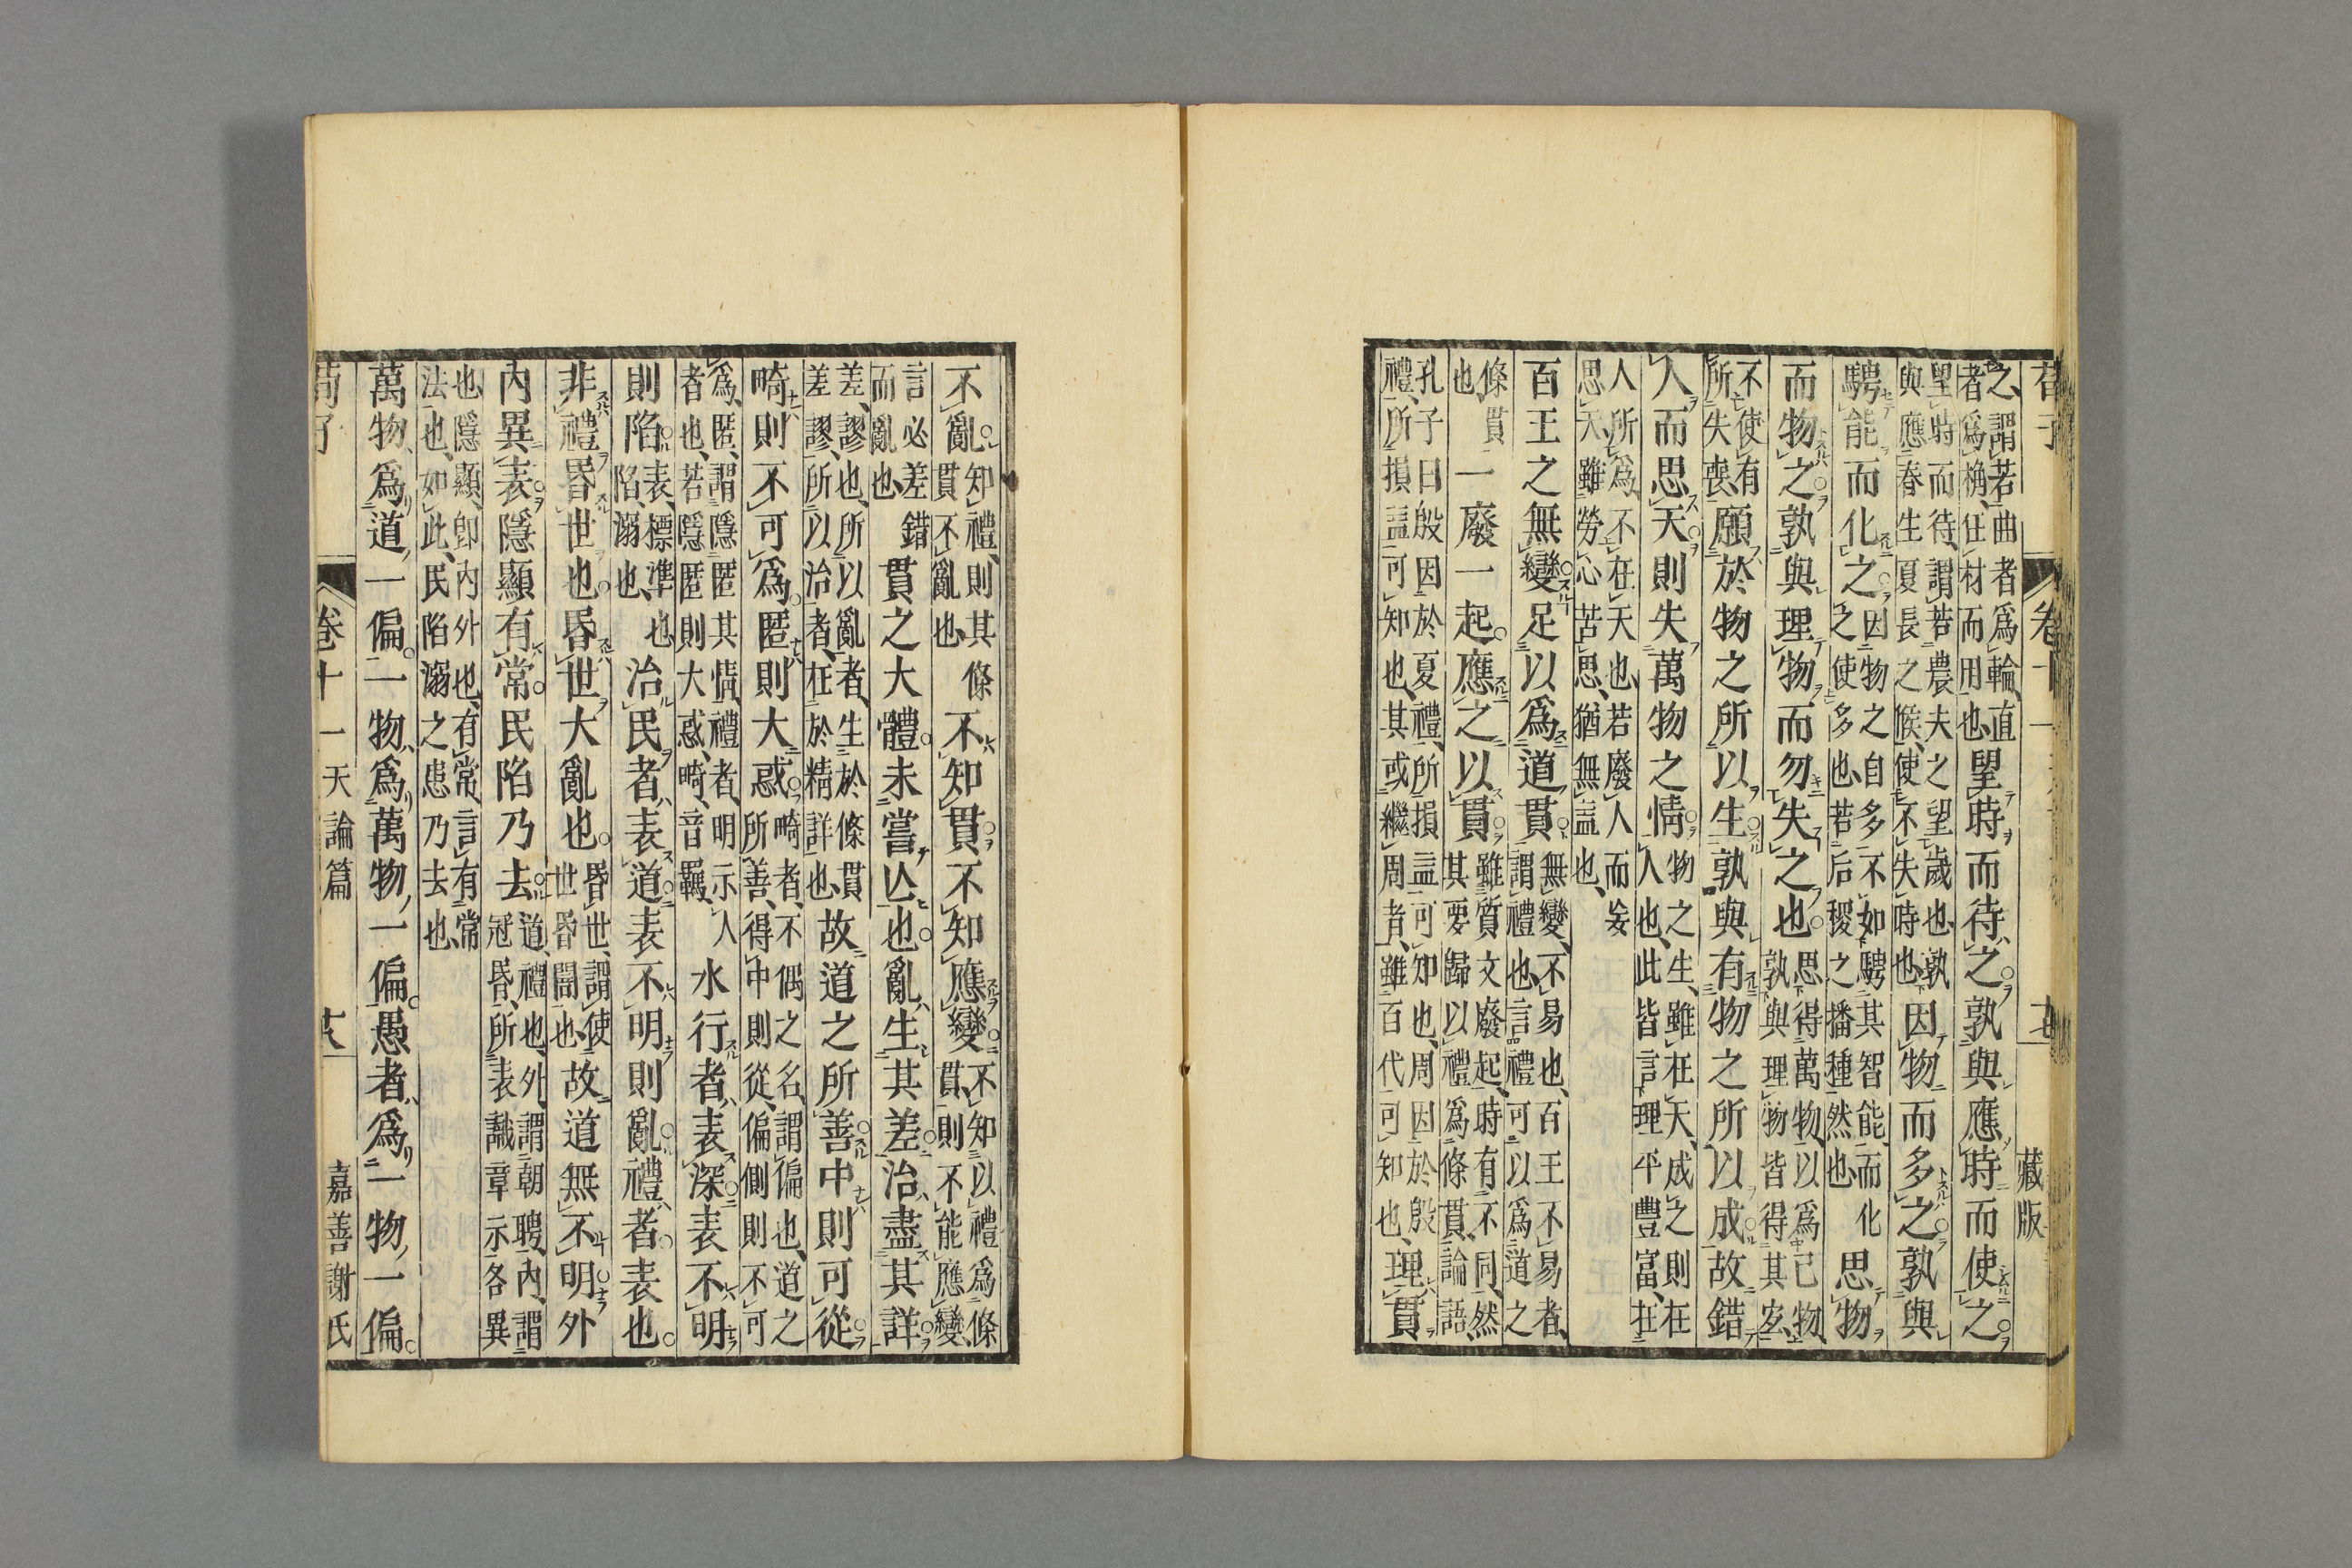 荀子 卷十一 藏版
之、謂若曲者爲輪、直
者爲桷、任材而用也、望時而待之孰與應時而使之
望時而待、謂若農夫之望歲也、孰
與應春生夏長之候、使不失時也、因物而多之孰與
騁能而化之因物之自多、不如騁其智能、而化
之使多也、若后稷之播種然也、思物
而物之孰與理物而勿失之也思得萬物、以爲己物、
孰與理物皆得其宜、
不使有
所失喪、願於物之所以生孰與有物之所以成故錯
人而思天則失萬物之情物之生、雖在天、成之則在
人也、此皆言理平豐富、在
人所爲、不在天也、若廢人而妄
思天、雖勞心苦思、猶無益也、
百王之無變足以爲道貫無變、不易也、百王不易者、
謂禮也、言禮可以爲道之
條貫
也、一廢一起應之以貫雖質文廢起、時有不同、然
其要歸以禮爲條貫、論語、
孔子曰殷因於夏禮、所損益可知也、周因於殷
禮、所損益可知也、其或繼周者、雖百代可知也、理貫
不亂知禮、則其條
貫不亂也、不知貫不知應變不知以禮爲條
貫、則不能應變、
言必差錯
而亂也、貫之大體未嘗亾也亂生其差治盡其詳
差、謬也、所以亂者、生於條貫
差謬、所以治者、在於精詳也、故道之所善中則可從
畸則不可爲匿則大惑畸者、不偶之名、謂偏也、道之
所善、得中則從、偏側則不可
爲、匿、謂隱匿其情、禮者、明示人
者也、若隱匿則大惑、畸、音羈、水行者表深表不明
則陷表、標準也、
陷、溺也、治民者表道表不明則亂禮者表也
非禮昏世也昏世大亂也昏世、謂使
世昏闇也、故道無不明外
內異表隱顯有常民陷乃去道、禮也、外、謂朝聘、內、謂
冠昏、所表識章示各異
也、隱顯、卽內外也、有常、言有常
法也、如此、民陷溺之患乃去也、
萬物爲道一偏一物爲萬物一偏愚者爲一物一偏
荀子 卷十一 天論篇 十八 嘉善謝氏